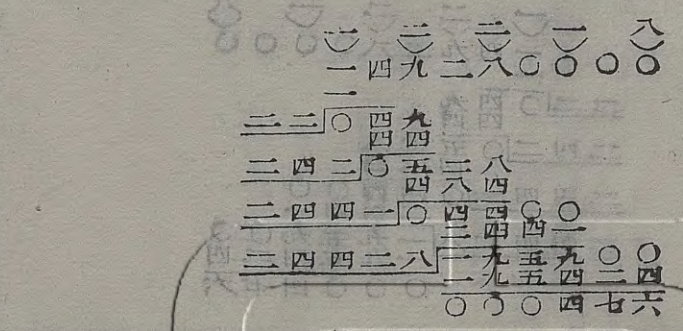 一 二 二 一 八
一四九二八〇〇〇〇
一
二二 〇四九
四四
二四二 〇五二八
四八四
二四四一 〇四四〇〇
二四四一
二四四二八 一九五九〇〇
一九五四二四
〇〇〇四七六